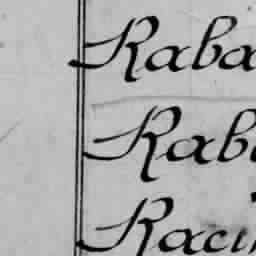 Raba
Rab
Raci